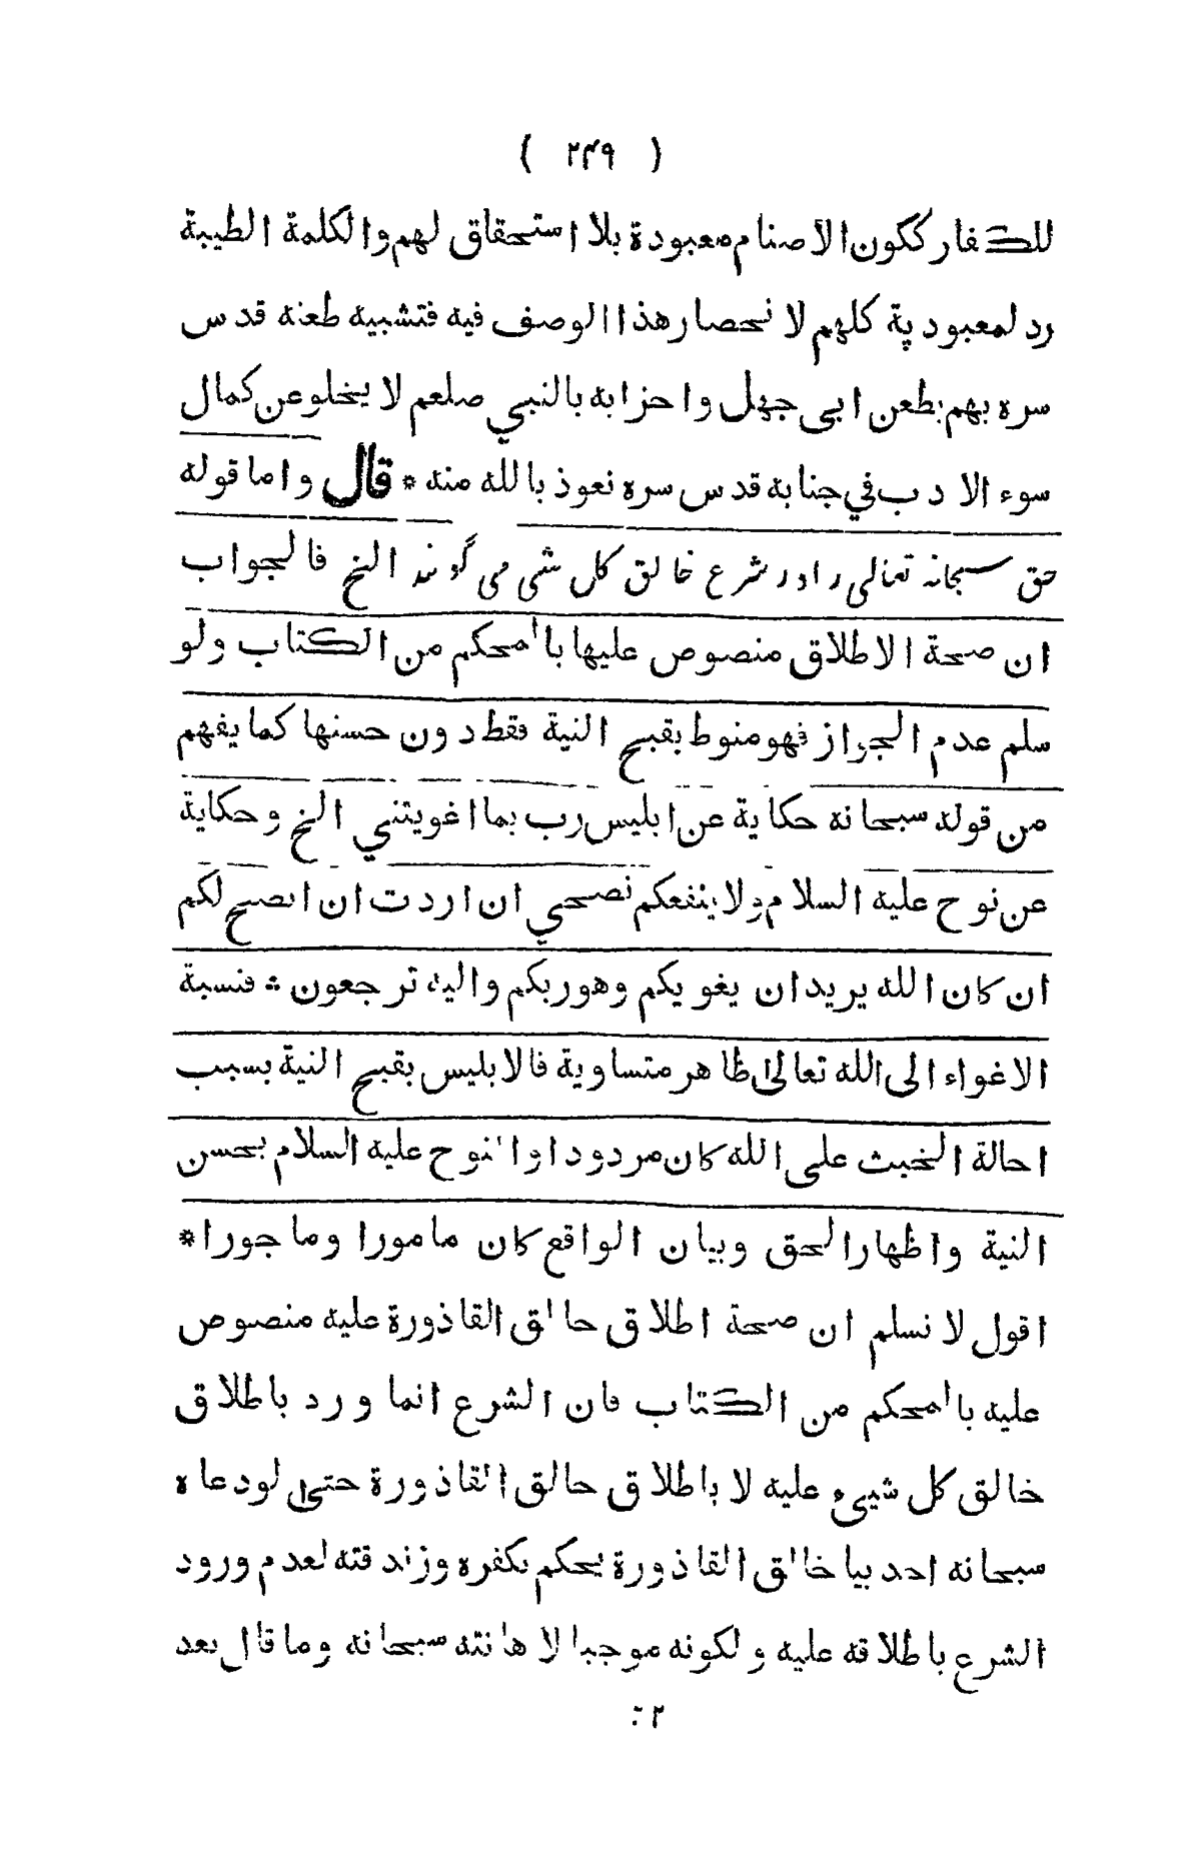 ( ۲۴۹ )
للكفار ككون الاصنام معبودة بلا استحقاق لهم والكلمة الطيبة
رد لمعبودية كلهم لا نحصار هذا الوصف فيه فتشبيه طعنه قدس
سره بهم بطعن ابى جهل واحزابه بالنبي صلعم لا يخلو عن كمال
سوء الادب في جنابه قدس سره نعوذ بالله منه * قال واما قوله
حق سبحانه تعالى را در شرع خالق كل شى مى گويند الخ فالجواب
ان صحة الاطلاق منصوص عليها بالمحكم من الكتاب ولو
سلم عدم الجواز فهو منوط بقبح النية فقط دون حسنها كما يفهم
من قوله سبحانه حكاية عن ابليس رب بما اغويتني الخ وحكاية
عن نوح عليه السلام ولا ينفعكم نصحي ان اردت ان انصح لكم
ان كان الله يريد ان يغويكم وهو ربكم واليه ترجعون * فنسبة
الاغواء الى الله تعالى ظاهر متساوية فالابليس بقبح النية بسبب
احالة الخبث على الله كان مردودا والنوح عليه السلام بحسن
النية واظهار الحق وبيان الواقع كان مامورا وماجورا *
اقول لا نسلم ان صحة اطلاق خالق القاذورة عليه منصوص
عليه بالمحكم من الكتاب فان الشرع انما ورد باطلاق
خالق كل شيىء عليه لا باطلاق خالق القاذورة حتى لو دعاه
سبحانه احد بيا خالق القاذورة يحكم بكفره وزندقته لعدم ورود
الشرع باطلاقه عليه ولكونه موجبا لاهانته سبحانه وما قال بعد
۲